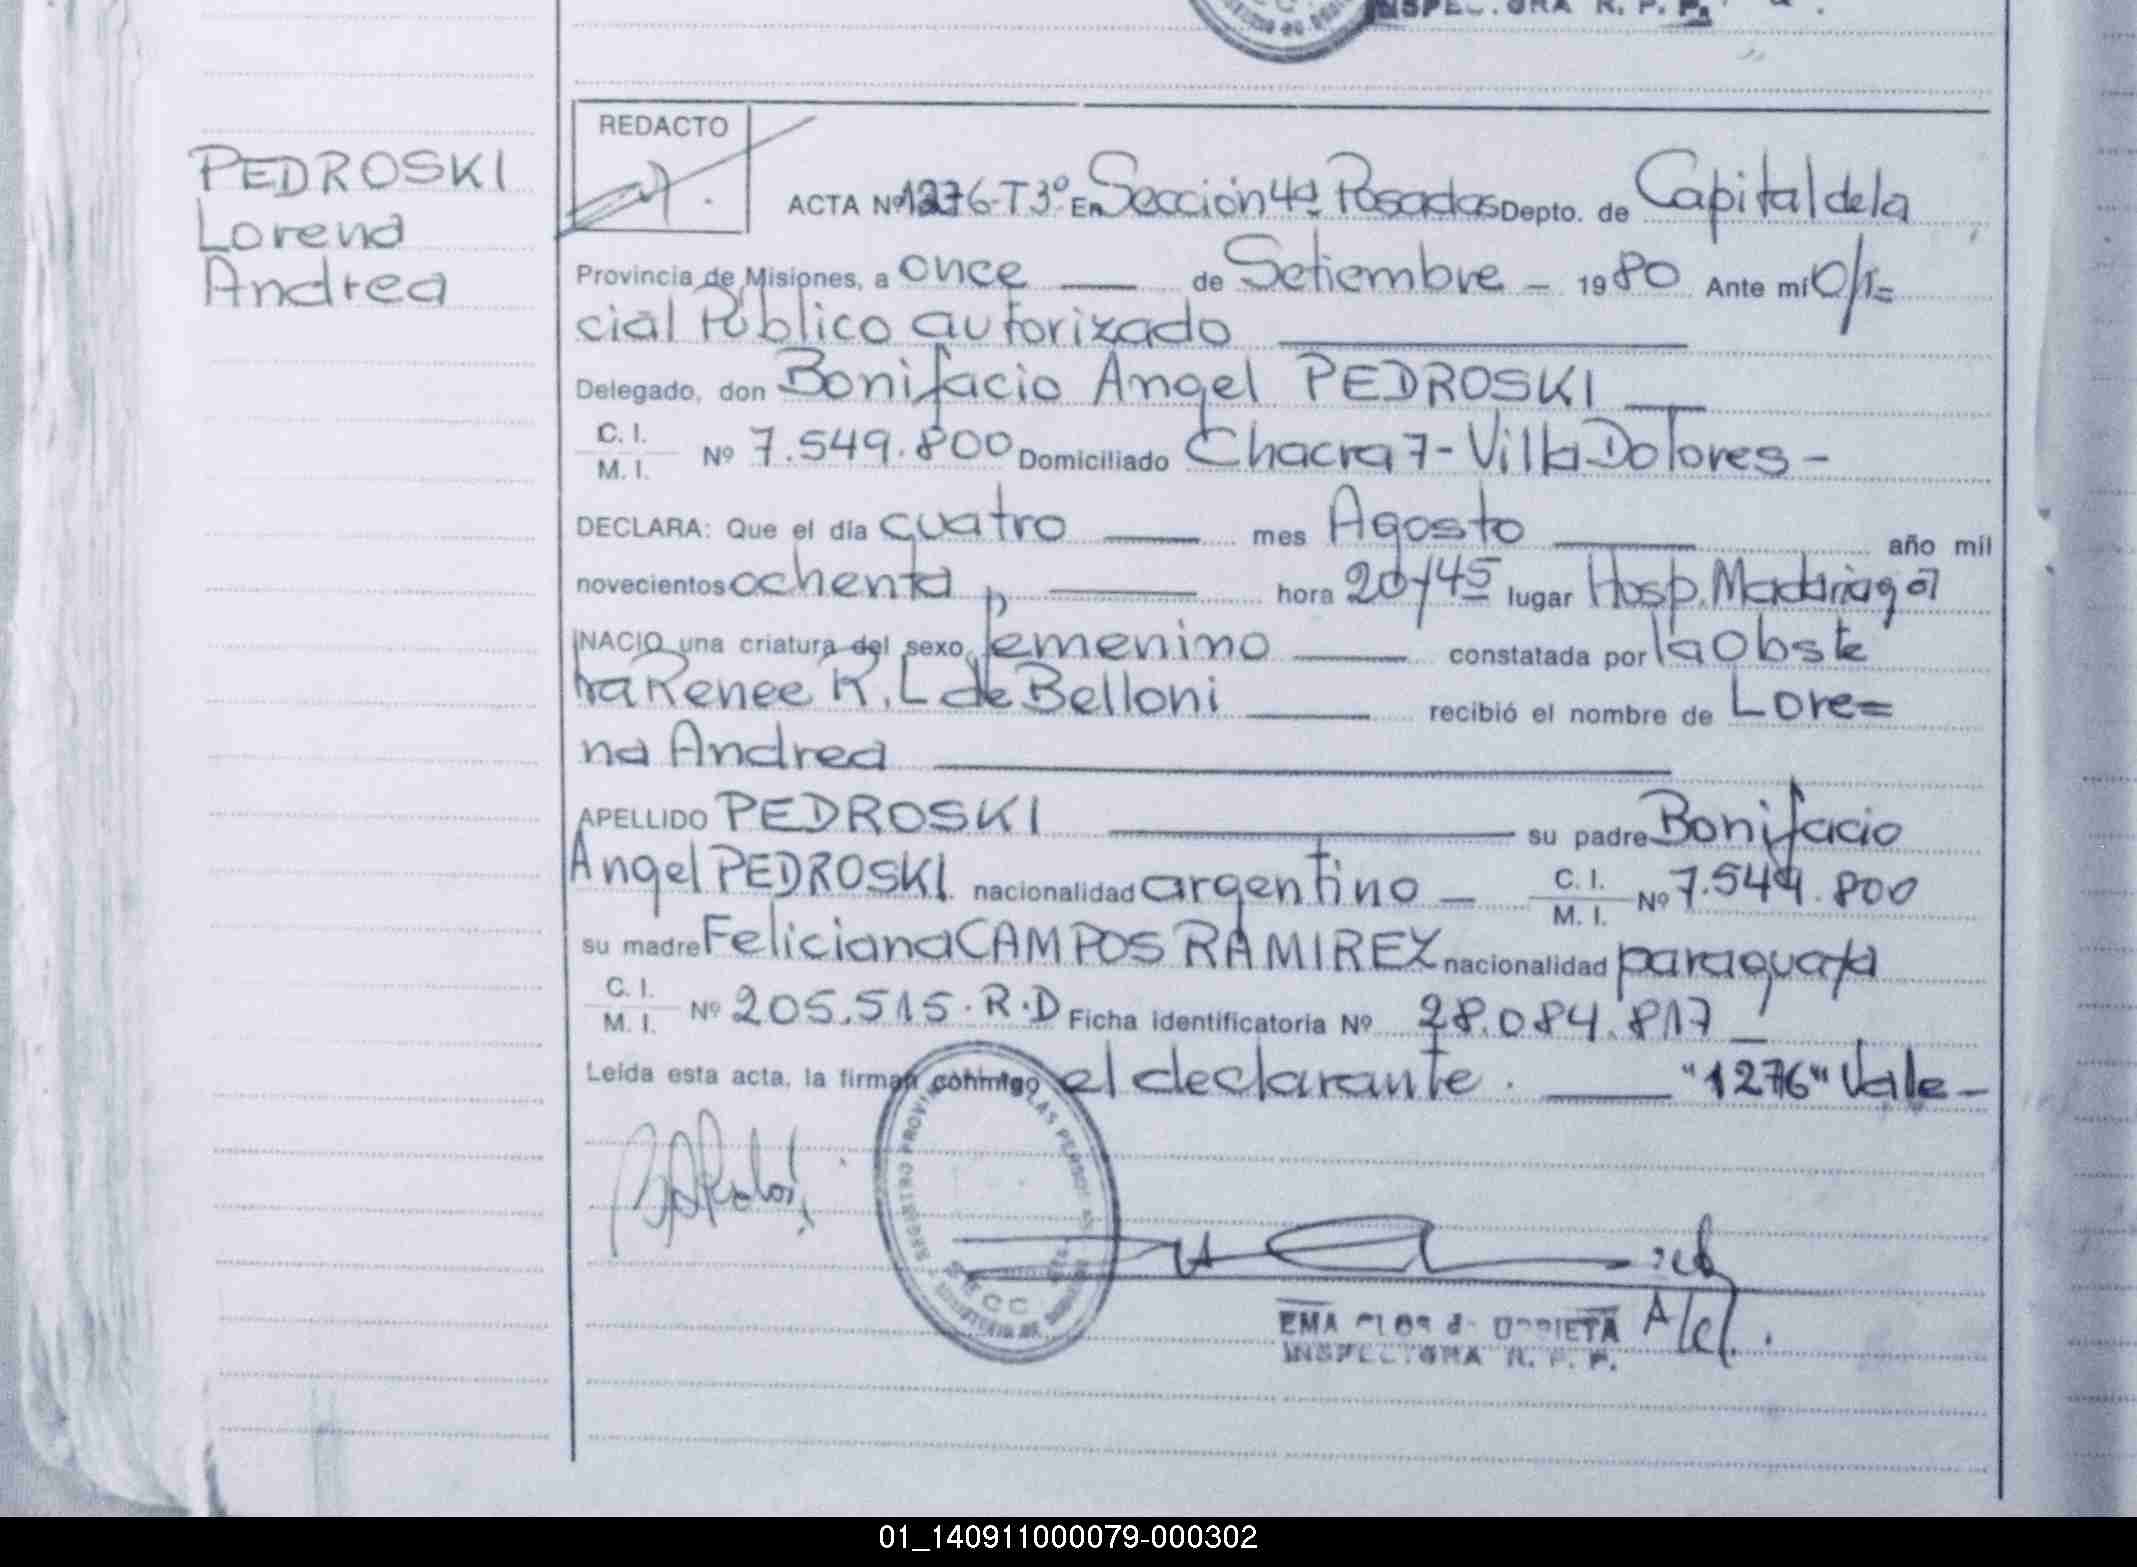 INSPECTORA R. P. P.
REDACTO
PEDROSKI
Lorena
Andrea
ACTA Nº 1276-T3º En Sección 4ª Posadas Depto. de Capital de la
Provincia de Misiones, a once de Setiembre - 1980 Ante mi Ofi=
cial Público autorizado
Delegado, don Bonifacio Angel PEDROSKI
C. I.
M. I. Nº 7.549.800 Domiciliado Chacra 7 - Villa Dolores -
DECLARA: Que el día cuatro mes Agosto año mil
novecientos ochenta, hora 20/45 lugar Hosp. Madariaga
NACIO una criatura del sexo femenino constatada por la Obste
tra Renee R. L de Belloni recibió el nombre de Lore=
na Andrea
APELLIDO PEDROSKI su padre Bonifacio
Angel PEDROSKI nacionalidad argentino - C. I.
M. I. Nº 7.549.800
su madre Feliciana CAMPOS RAMIREZ nacionalidad paraguaya
C. I.
M. I. Nº 205.515.R.D Ficha identificatoria Nº 28.084.817
Leída esta acta, la firman conmigo el declarante. "1276" Vale -
EMA
INSPECTORA R. P. P.
01_140911000079-000302